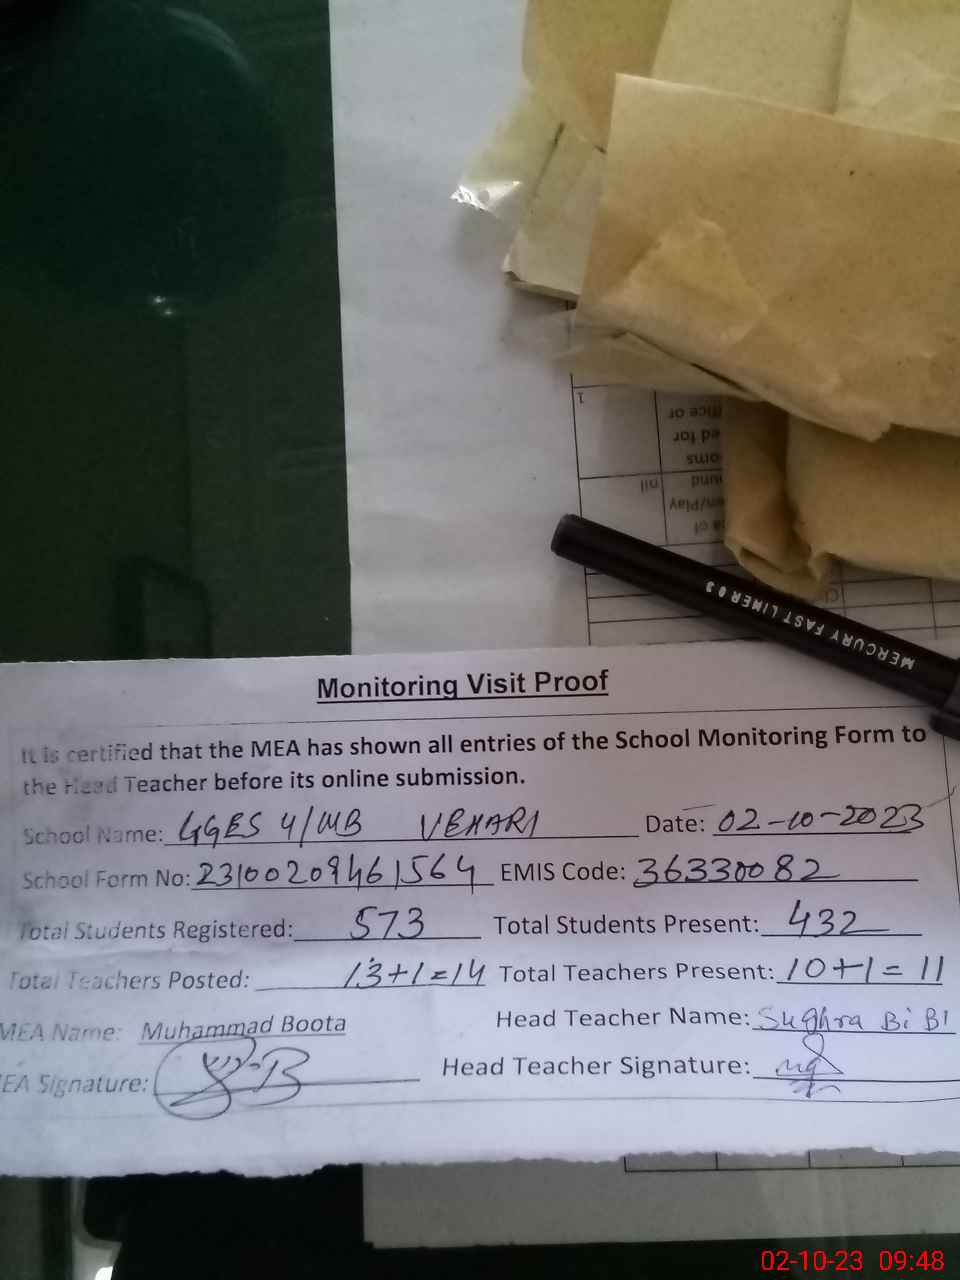 1
office or
ed for
oms
nil
ound
en/Play
a of
MERCURY FAST LINER 03
Monitoring Visit Proof
It is certified that the MEA has shown all entries of the School Monitoring Form to
the Head Teacher before its online submission.
School Name: GGES 4/WB VEHARI Date: 02-10-2023
School Form No: 23100209461564 EMIS Code: 36330082
Total Students Registered: 573 Total Students Present: 432
Total Teachers Posted: 13+1=14 Total Teachers Present: 10+1=11
MEA Name: Muhammad Boota Head Teacher Name: Sughra Bi Bi
EA Signature: Head Teacher Signature:
02-10-23 09:48